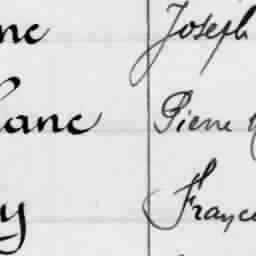 nc Joseph
lanc Pierre
y Franço